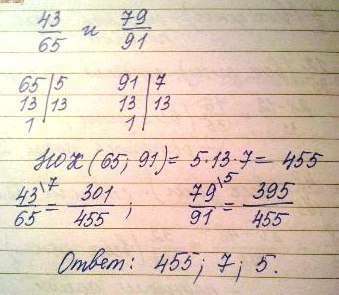 43/65 и 79/91
65|5 91|7
13|13 13|13
1| 1|
НОК (65; 91) = 5·13·7 = 455
43\7/65 = 301/455; 79\5/91 = 395/455
Ответ: 455; 7; 5.